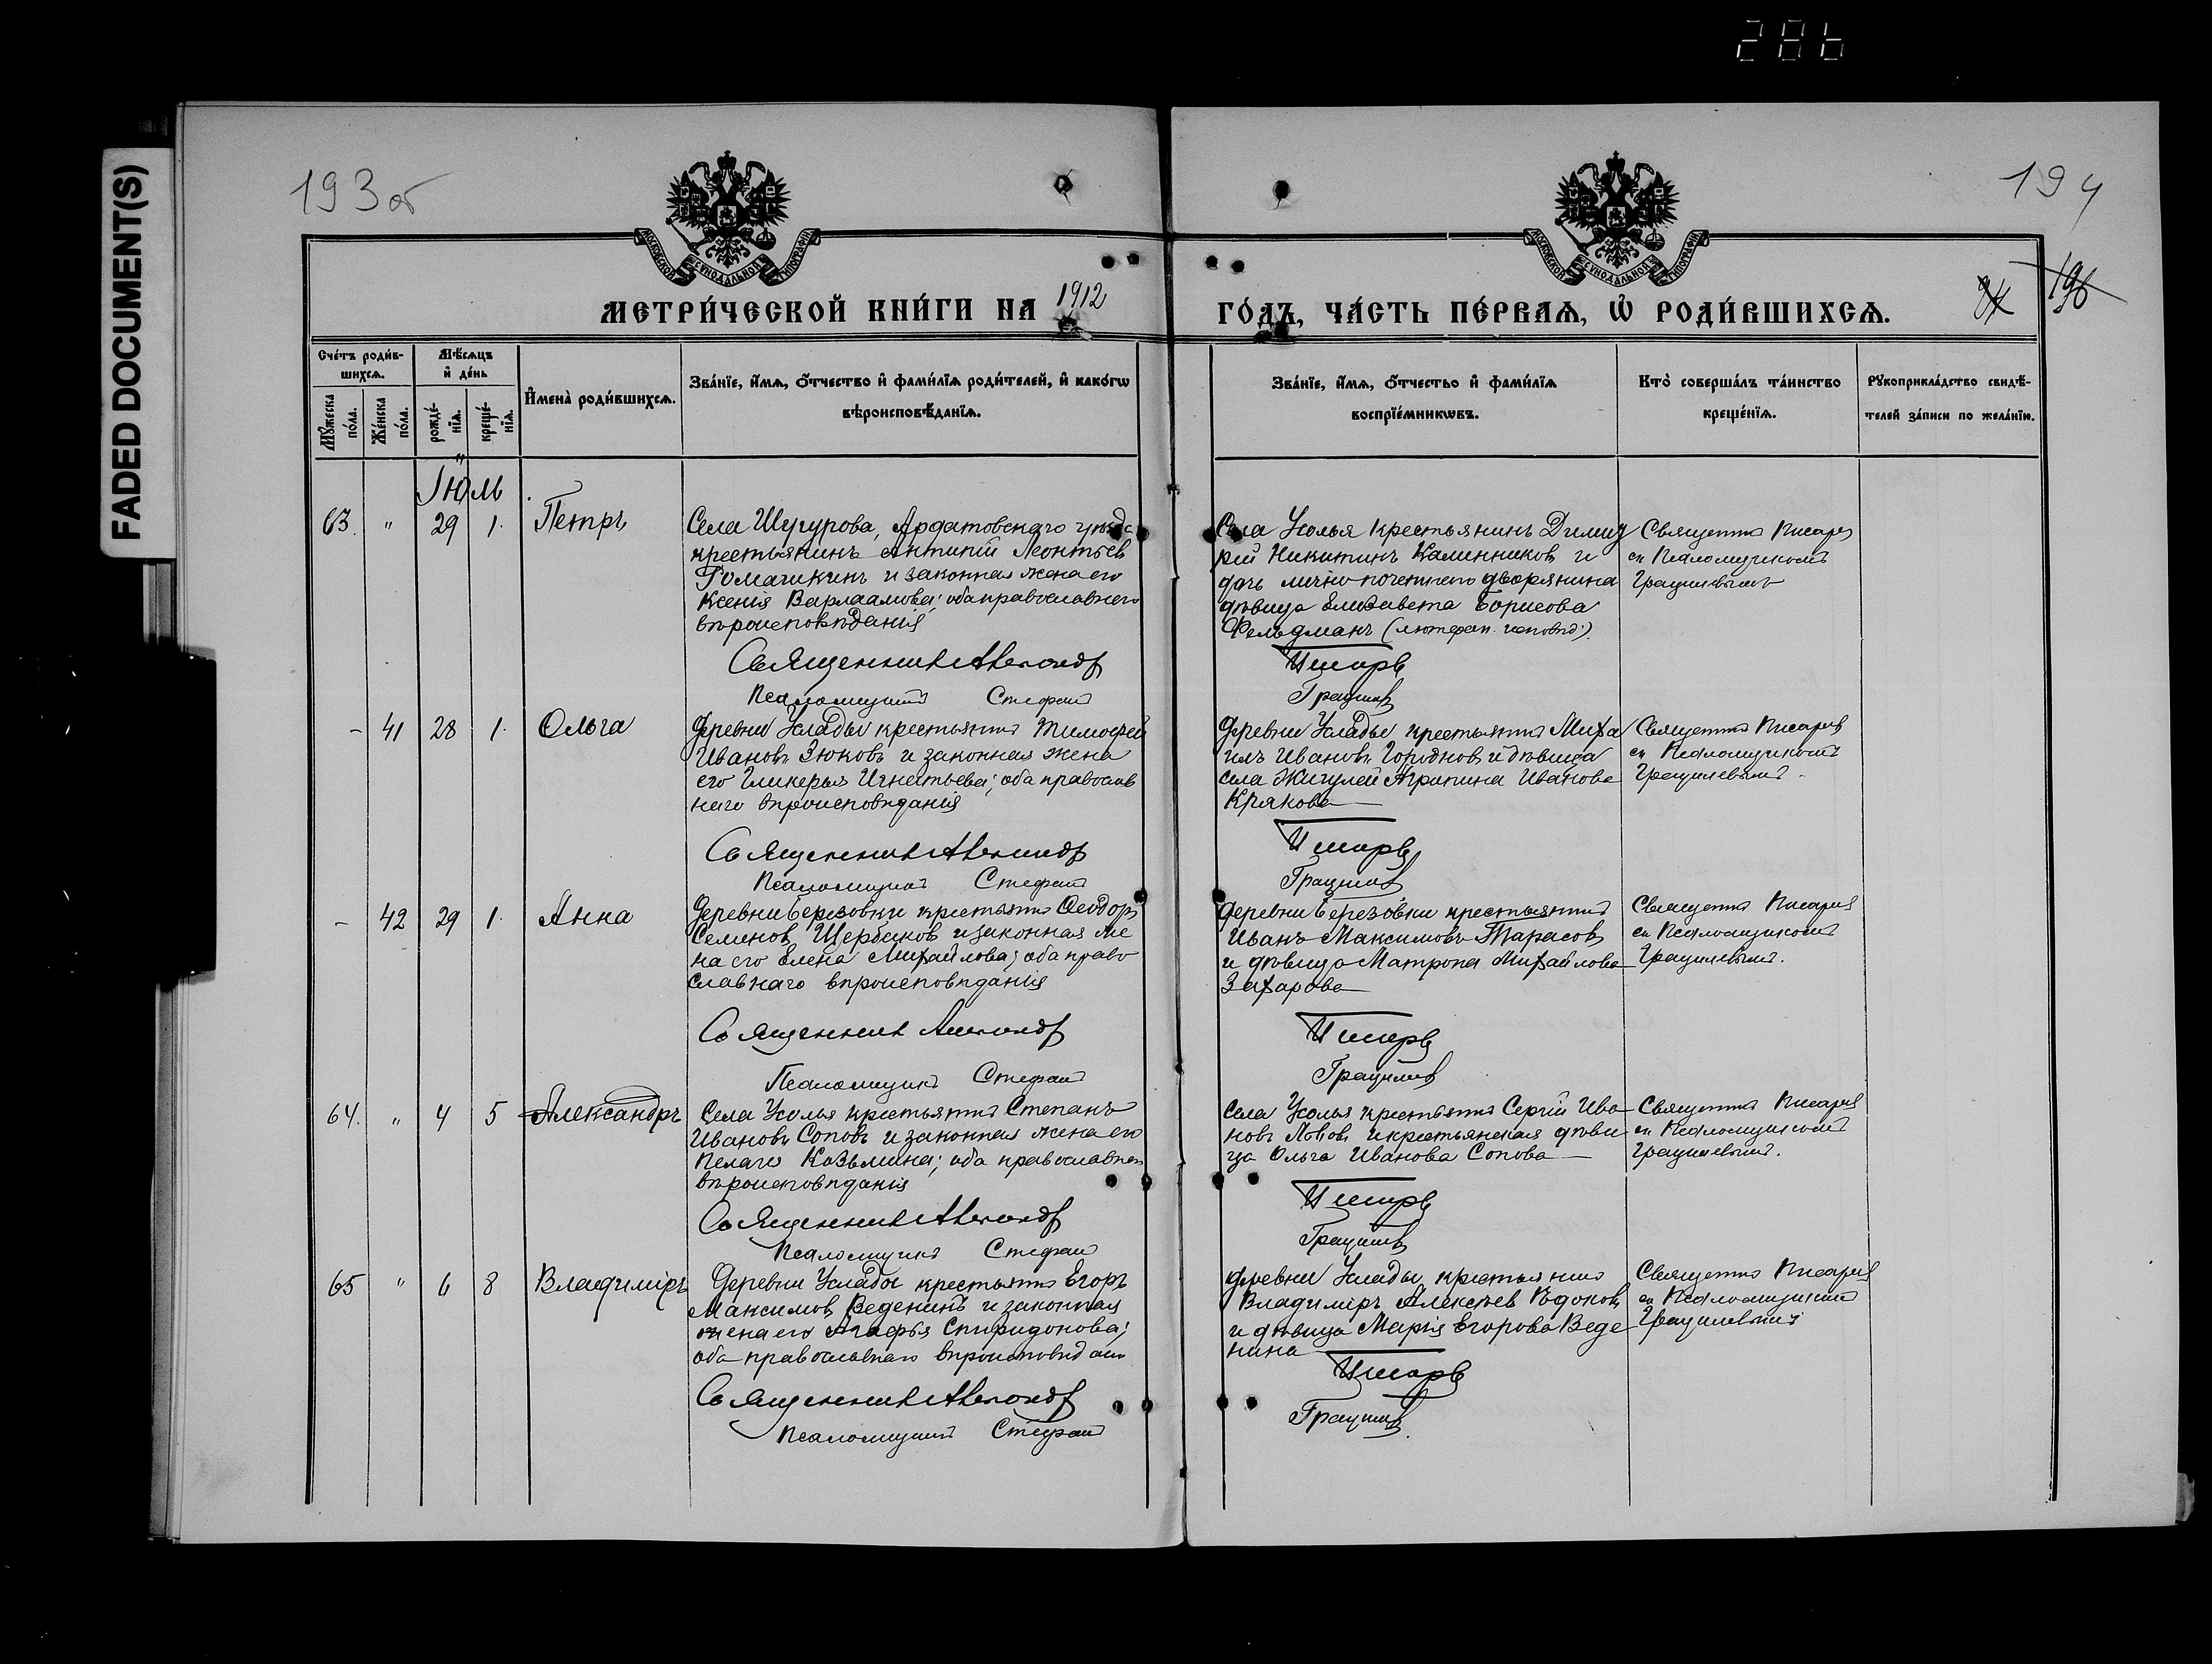 286
FADED DOCUMENT(S)
193 об
194
МОСКОВСКОЙ СѴНОДАЛЬНОЙ ТИПОГРАФІИ
МОСКОВСКОЙ СѴНОДАЛЬНОЙ ТИПОГРАФІИ
МЕТРИ́ЧЕСКОЙ КНИ́ГИ НА 1912
ГО́ДЪ, ЧА́СТЬ ПЕ́РВАѦ, Ѡ РОДИ́ВШИХСѦ.
196
Сче́тъ роди́в-
шихсѧ.
Мꙋ́жеска
по́ла.
Же́нска
по́ла.
Мѣ́сѧцъ
и҆ де́нь
рожде́-
нїѧ.
креще́-
нїѧ.
И҆мена̀ роди́вшихсѧ.
Зва́нїе, и҆́мѧ, ѻ҆́тчество и҆ фами́лїѧ роди́телей, и҆ како́гѡ
вѣроисповѣ́данїѧ.
Зва́нїе, и҆́мѧ, ѻ҆́тчество и҆ фами́лїѧ
воспрїе́мникѡвъ.
Кто̀ соверша́лъ та́инство
креще́нїѧ.
Рꙋкоприкла́дство свидѣ́-
телей за́писи по жела́нїю.
Іюль
63. " 29 1. Петръ
Села Шугурова, Ардатовскаго уѣзда
крестьянинъ Антипій Леонтьев
Ромашкинъ и законная жена его
Ксенія Варлаамова; оба православнаго
вѣроисповѣданія
Священникъ Александръ
Псаломщикъ Стефанъ
Села Усолья крестьянинъ Димит
рій Никитинъ Калинников и
дочь лично почетнаго дворянина
дѣвица Елизавета Борисова
Фельдманъ (лютеран. исповѣд.).
Писаревъ
Грацилевъ
Священникъ Писаревъ
съ Псаломщикомъ
Грацилевымъ
- 41 28 1. Ольга
Деревни Услады крестьянинъ Тимофей
Ивановъ Зюковъ и законная жена
его Гликерья Игнатьева; оба православ
наго вѣроисповѣданія
Священникъ Александръ
Псаломщикъ Стефанъ
Деревни Услады крестьянинъ Миха
илъ Ивановъ Городновъ и дѣвица
села Жигулей Агрипина Иванова
Крякова
Писаревъ
Грацилевъ
Священникъ Писаревъ
съ Псаломщикомъ
Грацилевымъ
- 42 29 1. Анна
Деревни Березовки крестьянинъ Ѳеодоръ
Семенов Щербаков и законная же
на его Елена Михайлова; оба право
славнаго вѣроисповѣданія
Священникъ Александръ
Псаломщикъ Стефанъ
Деревни Березовки крестьянинъ
Иванъ Максимовъ Тарасовъ
и дѣвица Матрона Михайлова
Захарова
Писаревъ
Грацилевъ
Священникъ Писаревъ
съ Псаломщикомъ
Грацилевымъ.
64. " 4 5 Александръ
Села Усолья крестьянинъ Степанъ
Ивановъ Соповъ и законная жена его
Пелагея Козьмина; оба православнаго
вѣроисповѣданія
Священникъ Александръ
Псаломщикъ Стефанъ
Села Усолья крестьянинъ Сергій Ива
новъ и крестьянская дѣви
ца Ольга Иванова Сопова
Писаревъ
Грацилевъ
Священникъ Писаревъ
съ Псаломщикомъ
Грацилевымъ.
65 " 6 8 Владиміръ
Деревни Услады крестьянинъ Егоръ
Максимов Веденинъ и законная
жена его Агафья Спиридонова;
оба православнаго вѣроисповѣдан
Священникъ Александръ
Псаломщикъ Стефанъ
деревни Услады крестьянинъ
Владиміръ Алексѣев
и дѣвица Марія Егорова Веде
нина
Писаревъ
Грацилевъ
Священникъ Писаревъ
съ Псаломщикомъ
Грацилевымъ